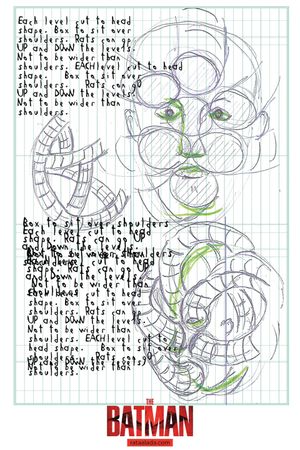 Each level cut to head
shape. Box to sit over
shoulders. Rats can go
UP and DOWN the levels.
Not to be wider than
shoulders. EACH level cut to head
shape. Box to sit over
shoulders. Rats can go
UP and DOWN the levels.
Not to be wider than
shoulders.
Box to sit over shoulders
Each level cut to head
shape. Rats can go UP
and Down the levels
shape. Rats can go UP
and Down the levels
Not to be wider than
cut to head
shape. Box to sit over
shoulders. Rats can go
UP and DOWN the levels.
Not to be wider than
shoulders. EACH level cut to
head shape. Box to sit over
shoulders. Rats can go
UP and DOWN the levels.
Not to be wider than
shoulders.
THE
BATMAN
rataalada.com